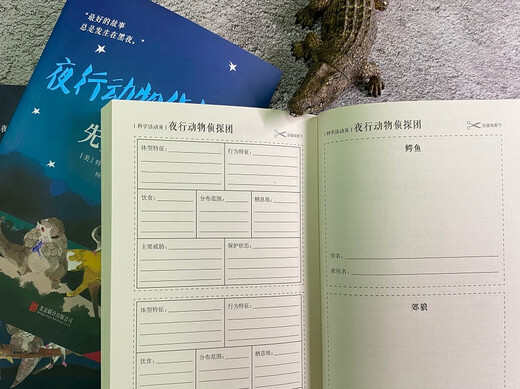 "最好的故事
总是发生在黑夜。"
夜行动物
先
[美]
北京联合出版公司
[科学活动页] 夜行动物侦探团
沿虚线剪下
体型特征：
行为特征：
饮食：
分布范围：
栖息地：
主要威胁：
保护状态：
体型特征：
行为特征：
饮食：
分布范围：
栖息地：
[科学活动页] 夜行动物侦探团
沿虚线剪下
鳄鱼
学名：
郊狼